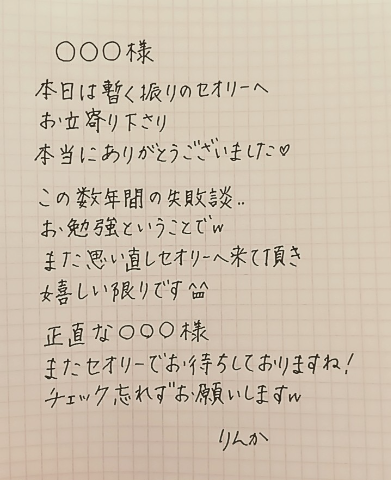 ○○○様
本日は暫く振りのセオリーへ
お立寄り下さり
本当にありがとうございました♡
この数年間の失敗談..
お勉強ということでw
また思い直しセオリーへ来て頂き
嬉しい限りです^^
正直な○○○様
またセオリーでお待ちしておりますね!
チェック忘れずお願いしますw
りんか